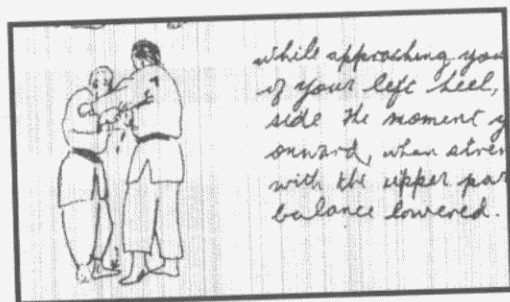 while approaching you
if your left heel,
side the moment y
onward, when stren
with the upper par
balance lowered.